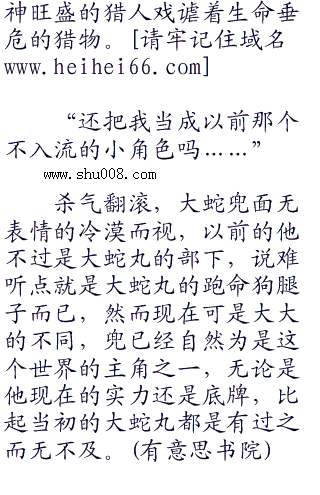 神旺盛的猎人戏谑着生命垂
危的猎物。[请牢记住域名
www.heihei66.com]
“还把我当成以前那个
不入流的小角色吗……”
www.shu008.com
杀气翻滚，大蛇兜面无
表情的冷漠而视，以前的他
不过是大蛇丸的部下，说难
听点就是大蛇丸的跑命狗腿
子而已，然而现在可是大大
的不同，兜已经自然为是这
个世界的主角之一，无论是
他现在的实力还是底牌，比
起当初的大蛇丸都是有过之
而无不及。(有意思书院)